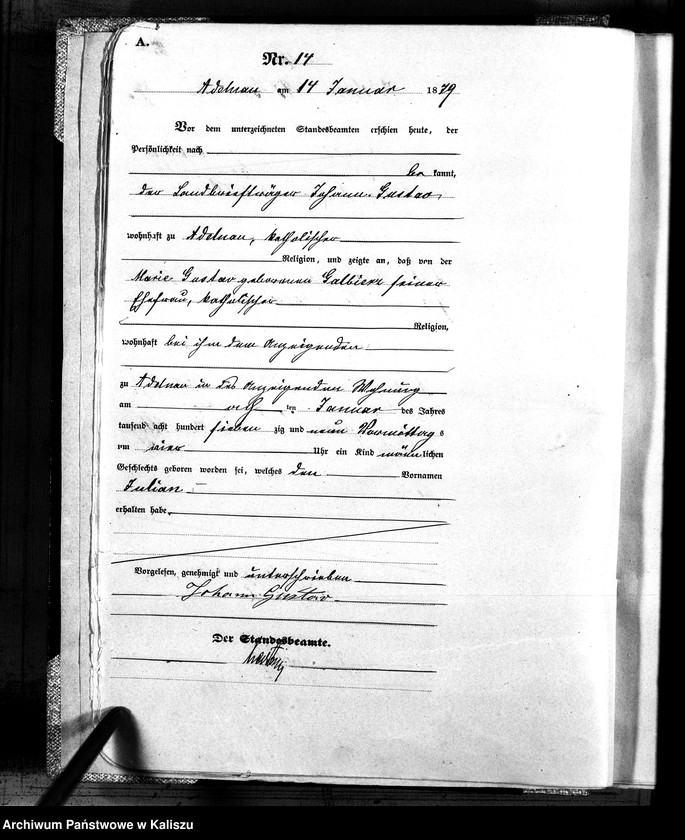 A.
Nr. 14
Adelnau am 14 Januar 1879
Vor dem unterzeichneten Standesbeamten erschien heute, der
Persönlichkeit nach
be kannt,
der Landbriefträger Johann Gustav,
wohnhaft zu Adelnau, katholischer
Religion, und zeigte an, daß von der
Marie Gustav geborenen seiner
Ehefrau, katholischer
Religion,
wohnhaft bei ihm dem Anzeigenden
zu Adelnau in des Anzeigenden Wohnung
am ten Januar des Jahres
tausend acht hundert sieben zig und neun Vormittag s
um vier Uhr ein Kind männ lichen
Geschlechts geboren worden sei, welches den Vornamen
Julian
erhalten habe.
Vorgelesen, genehmigt und unterschrieben
Johann Gustav
Der Standesbeamte.
Archiwum Państwowe w Kaliszu